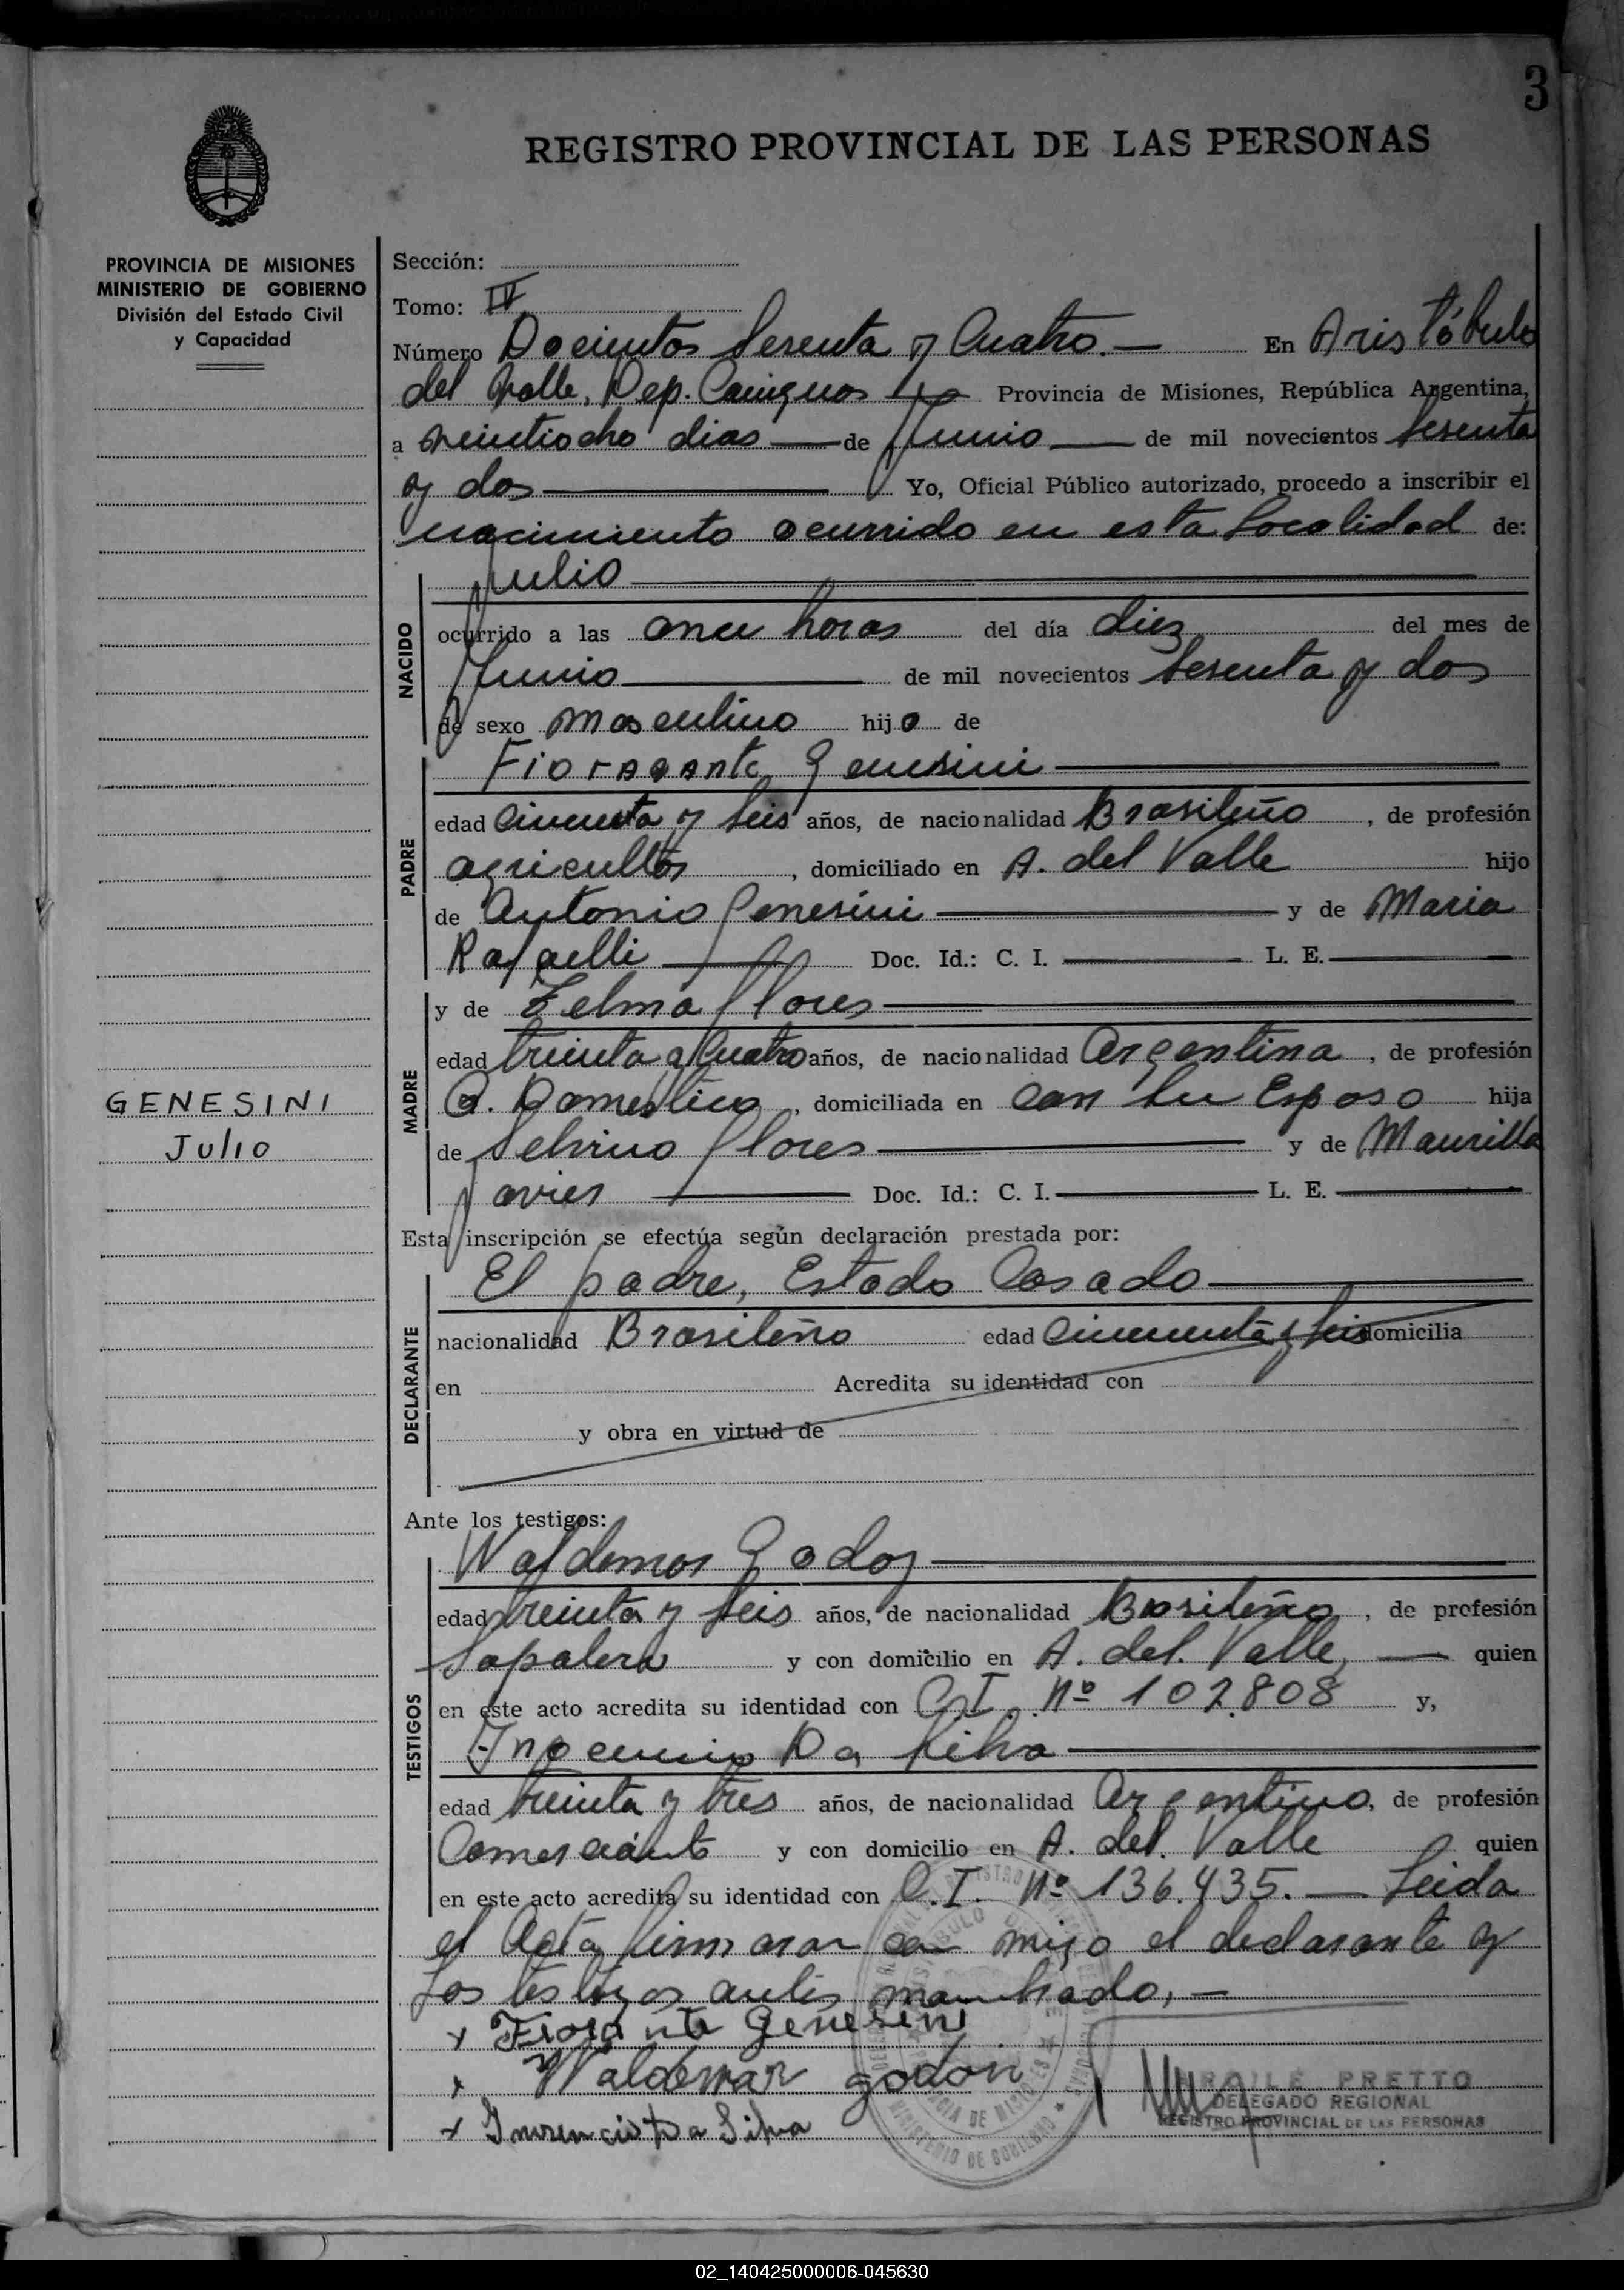 3
REGISTRO PROVINCIAL DE LAS PERSONAS
PROVINCIA DE MISIONES
MINISTERIO DE GOBIERNO
División del Estado Civil
y Capacidad
GENESINI
Julio
Sección:
Tomo: IV
Número Docientos Sesenta y Cuatro.— En Aristóbulo
del Valle, Dep. Cainguas Provincia de Misiones, República Argentina,
a veintiocho dias — de Junio — de mil novecientos Sesenta
y dos — Yo, Oficial Público autorizado, procedo a inscribir el
nacimiento ocurrido en esta Localidad de:
NACIDO
Julio
ocurrido a las once horas del día diez del mes de
Junio de mil novecientos Sesenta y dos
de sexo masculino hijo de
PADRE
Genesini
edad Cincuenta y Seis años, de nacionalidad Brasileño, de profesión
agricultor, domiciliado en A. del Valle hijo
de Antonio Genesini y de Maria
Rafaelli Doc. Id.: C. I. — L. E. —
MADRE
y de Zelma Flores
edad treinta y Cuatro años, de nacionalidad Argentina, de profesión
Q. Domestico, domiciliada en con su Esposo hija
de Selvino Flores y de Maurilla
Doc. Id.: C. I. — L. E. —
Esta inscripción se efectúa según declaración prestada por:
DECLARANTE
El padre, Estado Casado
nacionalidad Brasileño edad Cincuenta y Seis domicilia
en Acredita su identidad con
y obra en virtud de
Ante los testigos:
TESTIGOS
Waldemar Godoy
edad treinta y Seis años, de nacionalidad Brasileño, de profesión
Sapatero y con domicilio en A. del. Valle, — quien
en este acto acredita su identidad con C. I. Nº 102.808 y,
Da Silva
edad treinta y tres años, de nacionalidad Argentino, de profesión
Comerciante y con domicilio en A. del. Valle quien
en este acto acredita su identidad con C. I. Nº 136.435. — Leida
el Acta firmaron con migo el declarante y
Los testigos antes
x Genesini
x Waldemar godoi
x Da Silva
PRETTO
DELEGADO REGIONAL
REGISTRO PROVINCIAL DE LAS PERSONAS
02_140425000006-045630